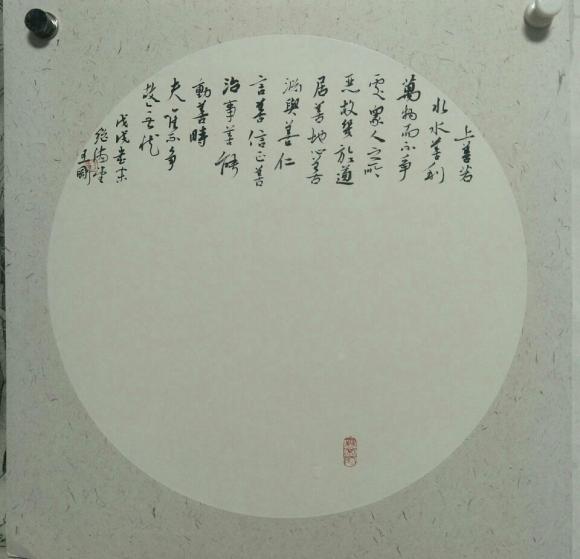 上善若
水水善利
萬物而不爭
處衆人之所
惡故幾於道
居善地心善
淵與善仁
言善信正善
治事善能
動善時
夫唯不爭
故無尤
戊戌歲末